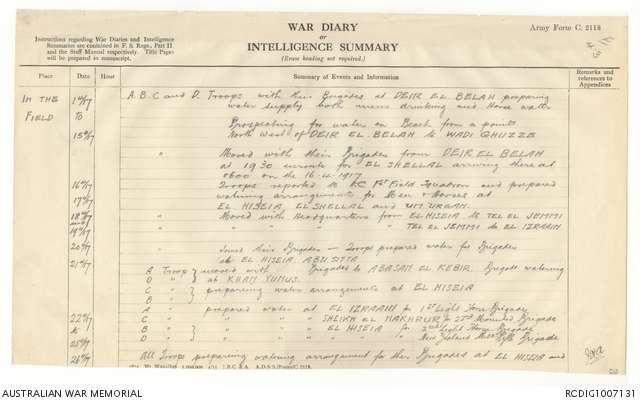 WAR DIARY
or
INTELLIGENCE SUMMARY
(Erase heading not required.)
Army Form C. 2118
Instructions regarding War Diaries and Intelligence
Summaries are contained in F. S. Regs., Part II
and the Staff Manual respectively. Title Pages
will be prepared in manuscript.
Place Date Hour Summary of Events and Information Remarks and references to Appendices
IN THE FIELD
A. B. C and D. Troops with their Brigades at DEIR EL BELAH preparing
to
water supply both mens drinking and Horse water
Prospecting for water on Beach from a point
15/4/17 North West of DEIR EL BELAH to WADI GHUZZE
" Moved with their Brigades from DEIR EL BELAH
at 1930 enroute for EL SHELLAL arriving there at
0600 on the 16.4.1917
16/4/17 Troops reported to 1st Field Squadron and prepared
17/4/17 watering arrangements for Men & Horses at
EL HISEIA, EL SHELLAL and UM URGAN.
18/4/17 " Moved with Headquarters from EL HISEIA to TEL EL JEMMI
19/4/17 " " " " TEL EL JEMMI to EL IZRAAIN
20/4/17 " Joined their Brigades - Troops prepared water for Brigades
21/4/17 at EL HISEIA. ABU
A Troop } moved with Brigades to ABASAN EL KEBIR. Brigade watering
D " } at KHAN YUNUS.
C " } preparing water arrangements at EL HISEIA
B " }
A " prepared water at EL IZRAAIN to 1st Light Horse Brigade
22/4/17 C " " " " SHEIKH EL to 22nd Mounted Brigade
to B " } " " " EL HISEIA for 2nd Light Horse Brigade
25/4/17 D " } " " " New Zealand Mtd Rifle Brigade
26/4/17 All Troops preparing watering arrangement for their Brigades at EL HISEIA and
AUSTRALIAN WAR MEMORIAL
RCDIG1007131